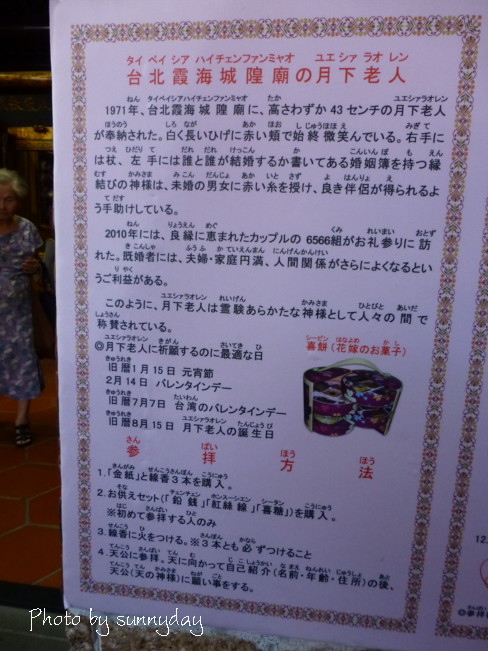 タイ ペイ シア ハイチェンファンミャオ ユエ シァ ラオ レン
台北霞海城隍廟の月下老人
1971年、台北霞海城隍廟に、高さわずか43センチの月下老人
が奉納された。白く長いひげに赤い頬で始終微笑んでいる。右手に
は杖、左手には誰と誰が結婚するか書いてある婚姻簿を持つ縁
結びの神様は、未婚の男女に赤い糸を授け、良き伴侶が得られるよ
う手助けしている。
2010年には、良縁に恵まれたカップルの6566組がお礼参りに訪
れた。既婚者には、夫婦・家庭円満、人間関係がさらによくなるとい
うご利益がある。
このように、月下老人は霊験あらたかな神様として人々の間で
称賛されている。
◎月下老人に祈願するのに最適な日
旧暦1月15日 元宵節
2月14日 バレンタインデー
旧暦7月7日 台湾のバレンタインデー
旧暦8月15日 月下老人の誕生日
シーピン はなよめ かし
喜餅(花嫁のお菓子)
さん ぱい ほう ほう
参拝方法
1.「金紙」と線香3本を購入。
2.お供えセット(「鉛銭」「紅絲線」「喜糖」)を購入。
※初めて参拝する人のみ
3.線香に火をつける。※3本とも必ずつけること
4.天公に参拝。天に向かって自己紹介(名前・年齢・住所)の後、
天公(天の神様)に願い事をする。
12.
Photo by sunnyday